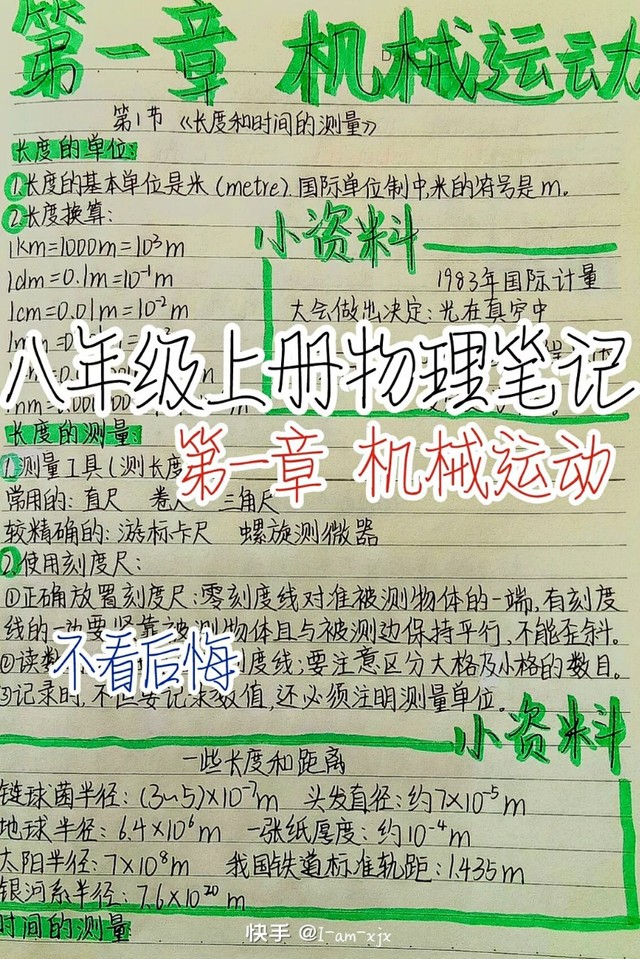 第一章 机械运动
第1节《长度和时间的测量》
长度的单位:
1.长度的基本单位是米(metre).国际单位制中,米的符号是m。
2.长度换算:
1km=1000m=10³m
1dm=0.1m=10⁻¹m
1cm=0.01m=10⁻²m
小资料
1983年国际计量
大会做出决定:光在真空中
八年级上册物理笔记
长度的测量:
第一章 机械运动
1测量工具(测长度
常用的:直尺 卷尺 三角尺
较精确的:游标卡尺 螺旋测微器
2.使用刻度尺:
①正确放置刻度尺:零刻度线对准被测物体的一端,有刻度
线的一边要紧靠被测物体且与被测边保持平行,不能歪斜.
不看后悔
②读数 刻度线;要注意区分大格及小格的数目。
③记录时,不但要记录数值,还必须注明测量单位。
小资料
一些长度和距离
链球菌半径:(3~5)×10⁻⁷m 头发直径:约7×10⁻⁵m
地球半径:6.4×10⁶m 一张纸厚度:约10⁻⁴m
太阳半径:7×10⁸m 我国铁道标准轨距:1.435m
银河系半径:7.6×10²⁰m
时间的测量
快手 @I-am-xjx